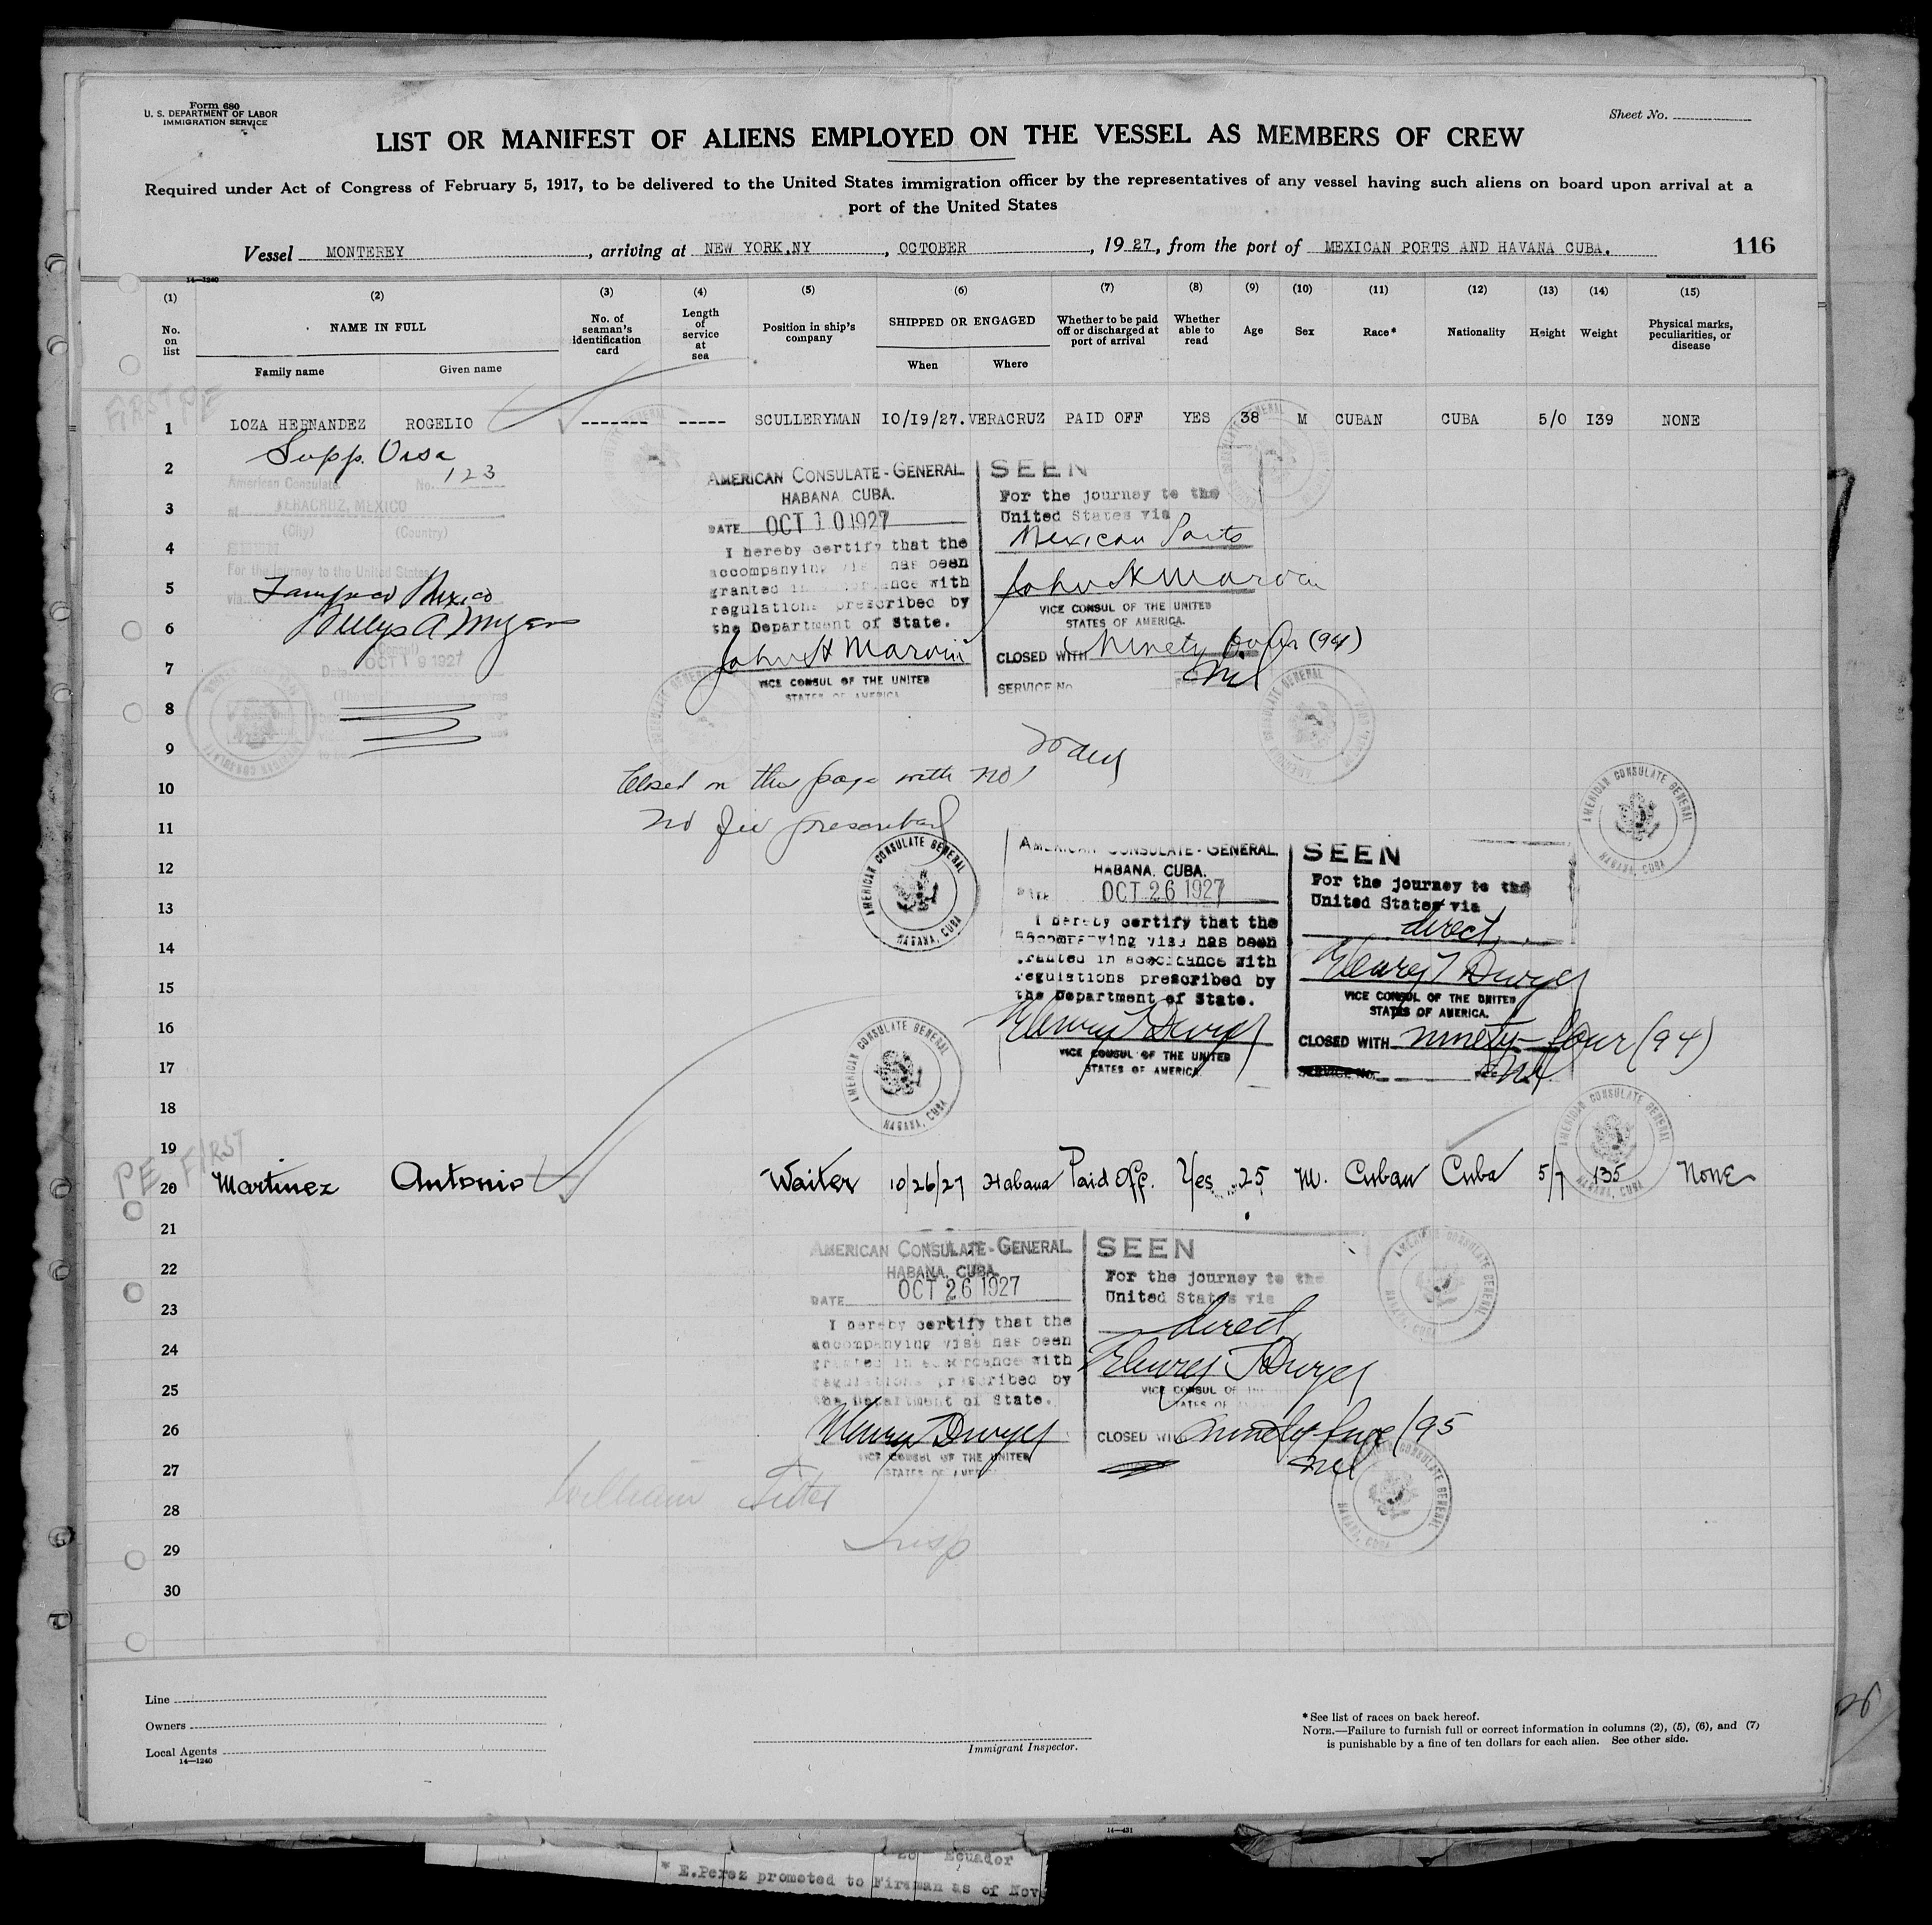 Form 680
U. S. DEPARTMENT OF LABOR
IMMIGRATION SERVICE
Sheet No.
LIST OR MANIFEST OF ALIENS EMPLOYED ON THE VESSEL AS MEMBERS OF CREW
Required under Act of Congress of February 5, 1917, to be delivered to the United States immigration officer by the representatives of any vessel having such aliens on board upon arrival at a
port of the United States
Vessel MONTEREY, arriving at NEW YORK,NY, OCTOBER, 1927, from the port of MEXICAN PORTS AND HAVANA CUBA. 116
14—1240
(1) (2) (3) (4) (5) (6) (7) (8) (9) (10) (11) (12) (13) (14) (15)
No. on list
NAME IN FULL
Family name
Given name
No. of seaman's identification card
Length of service at sea
Position in ship's company
SHIPPED OR ENGAGED
When
Where
Whether to be paid off or discharged at port of arrival
Whether able to read
Age
Sex
Race*
Nationality
Height
Weight
Physical marks, peculiarities, or disease
FIRST PE
1 LOZA HERNANDEZ ROGELIO -------- ----- SCULLERYMAN 10/19/27. VERACRUZ PAID OFF YES 38 M CUBAN CUBA 5/0 139 NONE
2
3
4
5
6
7
8
9
10
11
12
13
14
15
16
17
18
19
Supp. Visa
American Consulate. No. 123
at VERACRUZ, MEXICO
(City) (Country)
SEEN
For the journey to the United States
via Tampico Mexico
(Consul)
Date OCT 19 1927
AMERICAN CONSULATE-GENERAL
HABANA, CUBA.
DATE OCT 10 1927
I hereby certify that the
accompanying visa has been
granted in accordance with
regulations prescribed by
the Department of State.
John H Marvin
VICE CONSUL OF THE UNITED
STATES OF AMERICA
SEEN
For the journey to the
United States via
Mexican Ports
John H Marvin
VICE CONSUL OF THE UNITED
STATES OF AMERICA.
CLOSED WITH Ninety four (94)
SERVICE No. nil
Closed on this page with no
no fee prescribed
AMERICAN CONSULATE GENERAL
HABANA, CUBA
AMERICAN CONSULATE-GENERAL
HABANA, CUBA.
DATE OCT 26 1927
I hereby certify that the
accompanying visa has been
granted in accordance with
regulations prescribed by
the Department of State.
Henry T Dwyer
VICE CONSUL OF THE UNITED
STATES OF AMERICA
SEEN
For the journey to the
United States via
direct
Henry T Dwyer
VICE CONSUL OF THE UNITED
STATES OF AMERICA.
CLOSED WITH ninety-four (94)
SERVICE No. FEE nil
AMERICAN CONSULATE GENERAL
HABANA, CUBA
AMERICAN CONSULATE GENERAL
HABANA, CUBA
PE FIRST
20 Martinez Antonio Waiter 10/26/27 Habana Paid Off. Yes 25 M. Cuban Cuba 5/7 135 None
AMERICAN CONSULATE GENERAL
HABANA, CUBA
21
22
23
24
25
26
27
28
29
30
AMERICAN CONSULATE-GENERAL
HABANA, CUBA.
DATE OCT 26 1927
I hereby certify that the
accompanying visa has been
granted in accordance with
regulations prescribed by
the Department of State.
Henry T Dwyer
VICE CONSUL OF THE UNITED
STATES OF AMERICA
SEEN
For the journey to the
United States via
direct
Henry T Dwyer
VICE CONSUL OF THE
STATES OF
CLOSED WITH ninety five (95
nil
AMERICAN CONSULATE GENERAL
HABANA, CUBA
AMERICAN CONSULATE GENERAL
HABANA, CUBA
William
Insp
Line
Owners
Local Agents
14—1240
Immigrant Inspector.
*See list of races on back hereof.
NOTE.—Failure to furnish full or correct information in columns (2), (5), (6), and (7)
is punishable by a fine of ten dollars for each alien. See other side.
14—431
Ecuador
* E.Perez promoted to Fireman as of Nov